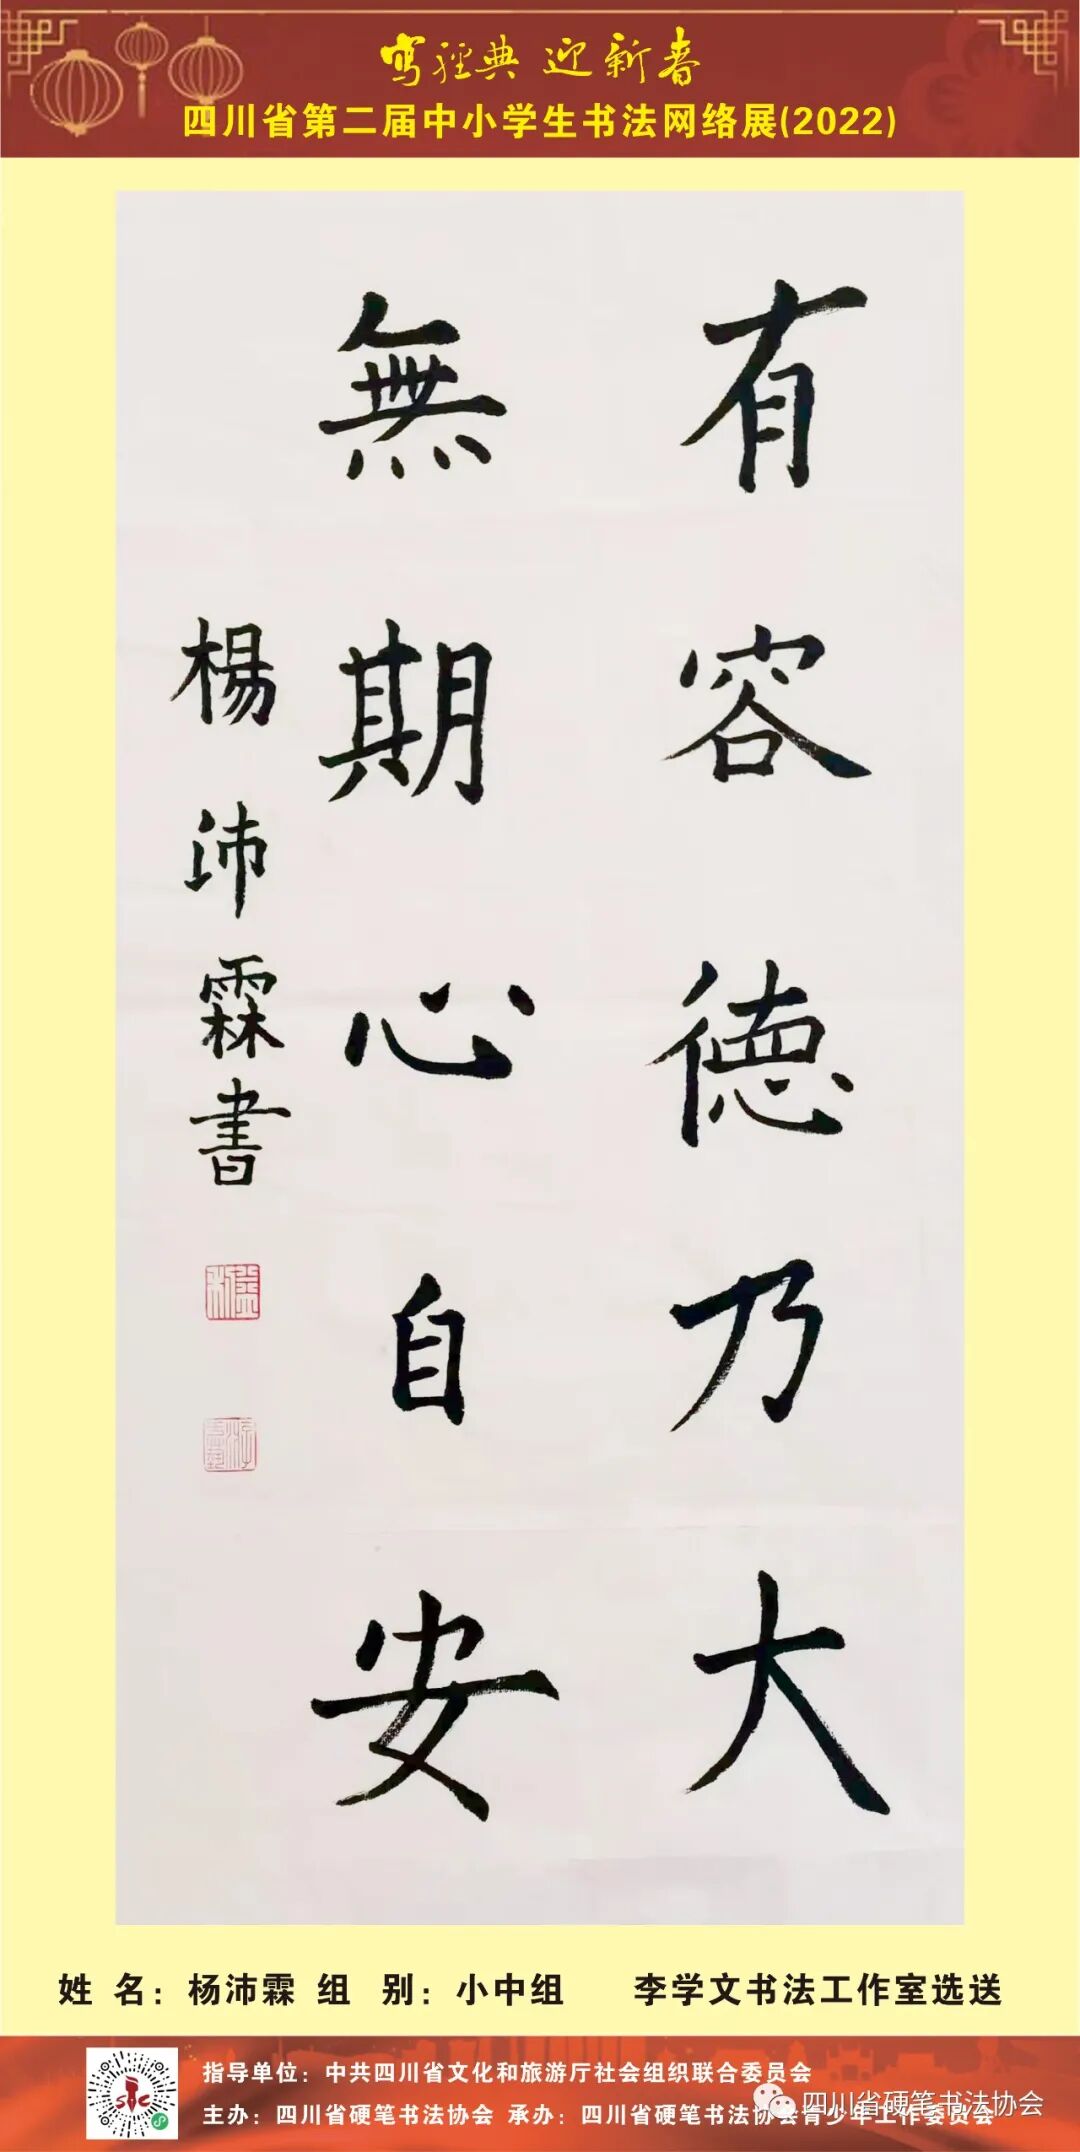 写經典 迎新春
四川省第二届中小学生书法网络展(2022)
有容德乃大
無期心自安
楊沛霖書
姓 名：杨沛霖 组 别：小中组 李学文书法工作室选送
指导单位：中共四川省文化和旅游厅社会组织联合委员会
主办：四川省硬笔书法协会 承办：四川省硬笔书法协会青少年工作委员会
四川省硬笔书法协会